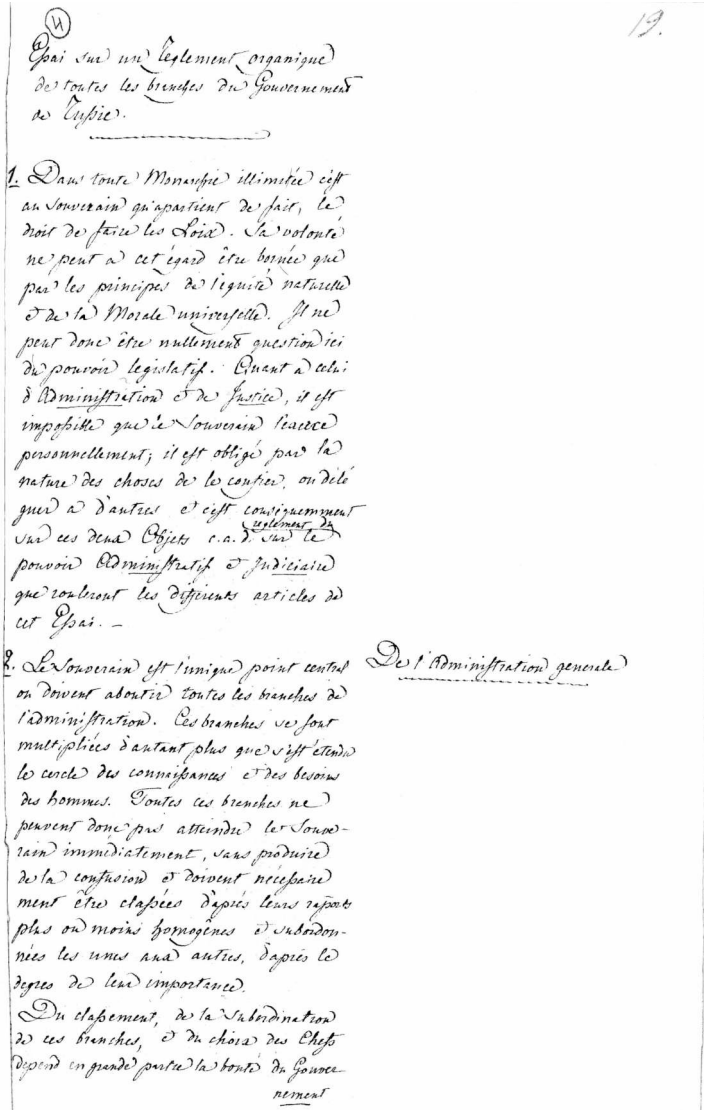 4
19.
Essai sur un Reglement organique
de toutes les branches du Gouvernement
de Russie.
1. Dans toute Monarchie illimitée c'est
au Souverain qu'apartient de fait, le
droit de faire les Loix. Sa volonté
ne peut a cet égard être bornée que
par les principes de l'équité naturelle
et de la Morale universelle. Il ne
peut donc être nullement question ici
du pouvoir legislatif. Quant a celui
d'Administration et de Justice, il est
impossible que le Souverain l'exerce
personnellement; il est obligé par la
nature des choses de le confier, ou délé
guer a d'autres et c'est consequemment
reglement du
sur ces deux Objets c.a.d. sur le
pouvoir Administratif et Judiciaire
que rouleront les différents articles de
cet Essai. —
2. Le Souverain est l'unique point central
De l'Administration generale
ou doivent aboutir toutes les branches de
l'administration. Ces branches se sont
multipliées d'autant plus que s'est étendu
le cercle des connaissances et des besoins
des hommes. Toutes ces branches ne
peuvent donc pas atteindre le Souve-
rain immédiatement, sans produire
de la confusion et doivent nécessaire
ment être classées d'après leurs raports
plus ou moins homogênes et subordon-
nées les unes aux autres, d'après le
degres de leur importance.
Du classement, de la subordination
de ces branches, et du choix des Chefs
depend en grande partie la bonté du Gouver-
nement